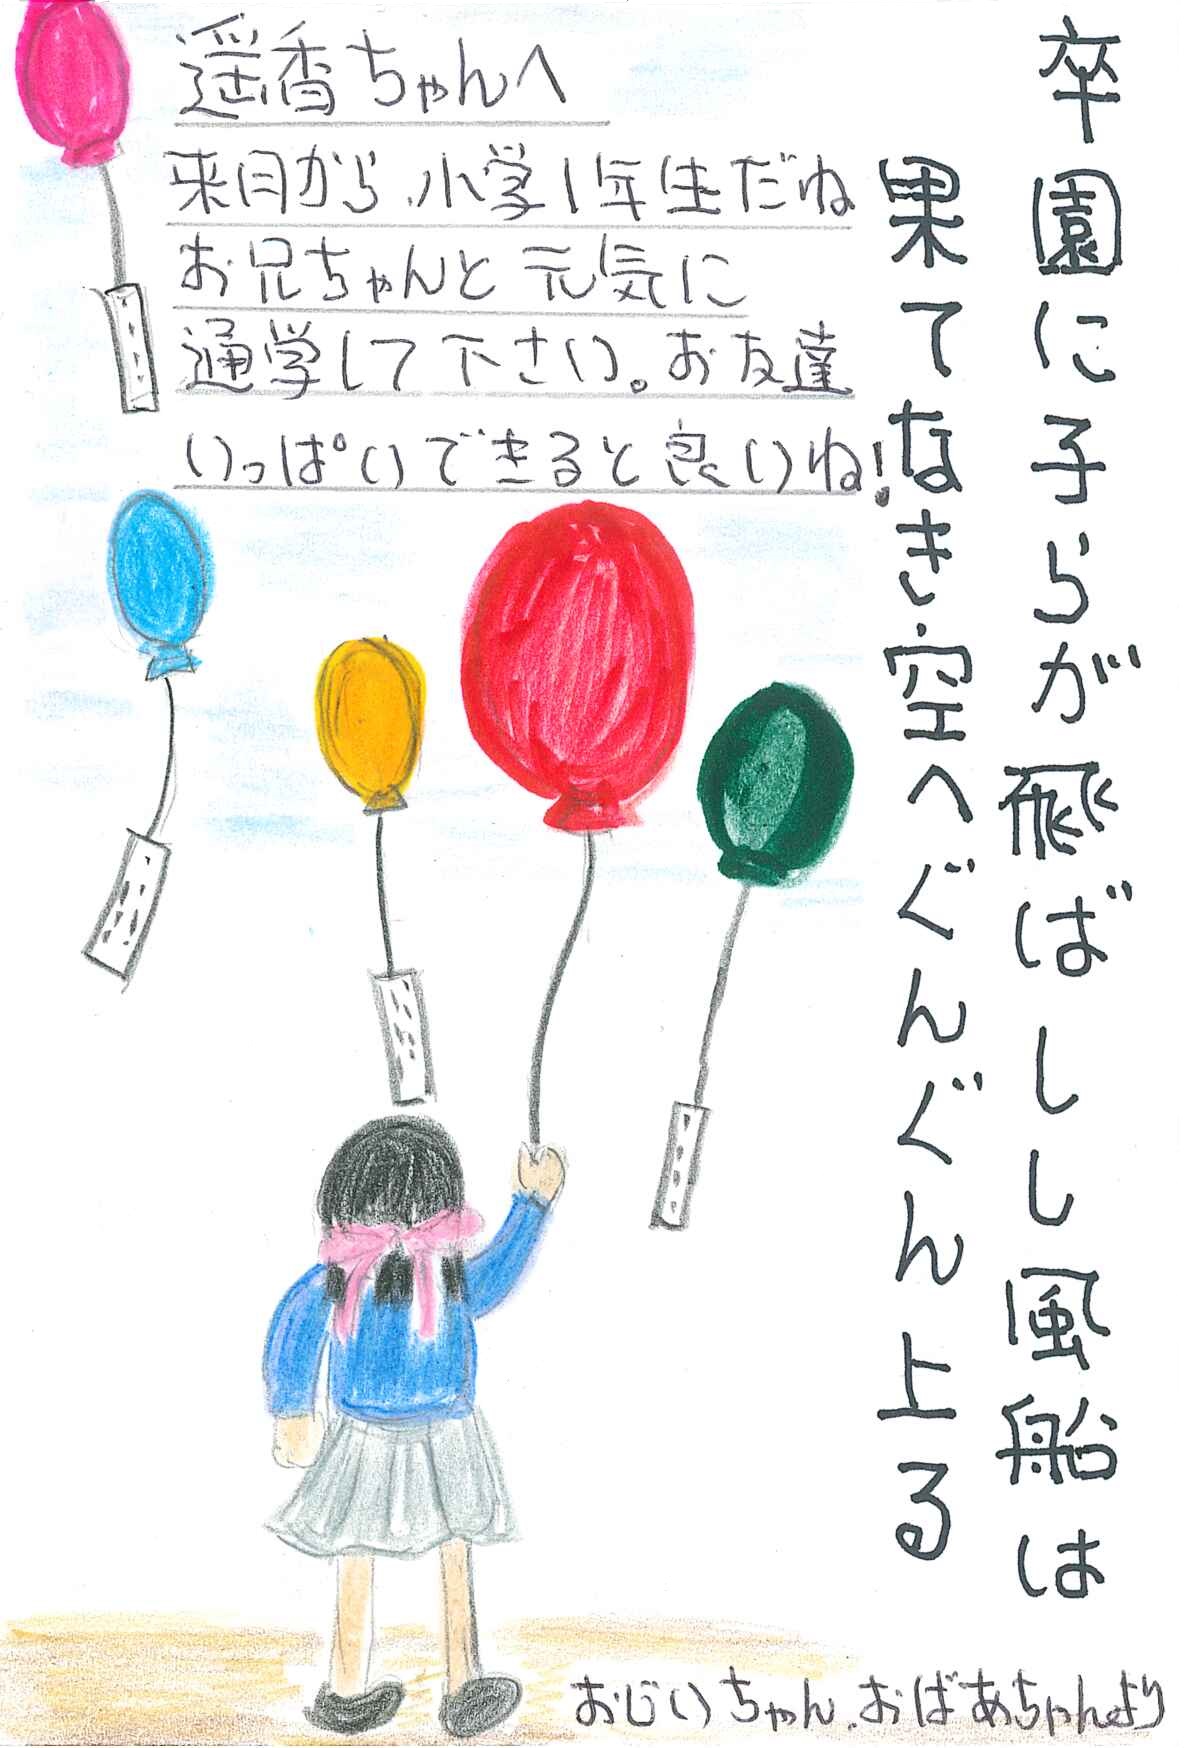 卒園に子らが飛ばしし風船は
果てなき空へぐんぐん上る
遥香ちゃんへ
来月から、小学1年生だね
お兄ちゃんと元気に
通学して下さい。お友達
いっぱいできると良いね!
おじいちゃん、おばあちゃんより